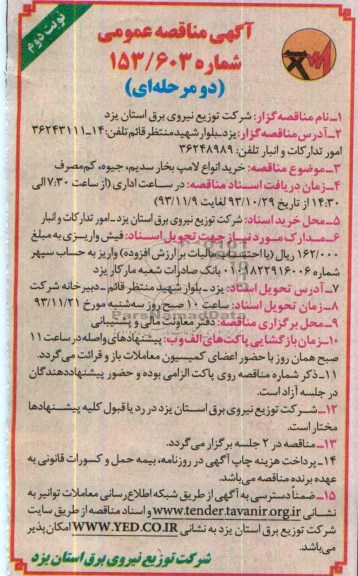 نوبت دوم
آگهی مناقصه عمومی
شماره ۱۵۳/۶۰۳
(دو مرحله‌ای)
۱-نام مناقصه‌گزار: شرکت توزیع نیروی برق استان یزد
۲-آدرس مناقصه‌گزار: یزد-بلوار شهید منتظر قائم تلفن: ۱۴-۳۶۲۴۳۱۱۱
امور تدارکات و انبار تلفن: ۳۶۲۴۸۹۸۹
۳-موضوع مناقصه: خرید انواع لامپ بخار سدیم، جیوه، کم‌مصرف
۴-زمان دریافت اسناد مناقصه: در ساعت اداری (از ساعت ۷:۳۰ الی
۱۴:۳۰ از تاریخ ۹۳/۱۰/۲۹ لغایت ۹۳/۱۱/۹)
۵-محل خرید اسناد: شرکت توزیع نیروی برق استان یزد-امور تدارکات و انبار
۶-مدارک مورد نیاز جهت تحویل اسناد: فیش واریزی به مبلغ
۱۶۲/۰۰۰ ریال (با احتساب مالیات بر ارزش افزوده) واریز به حساب سپهر
شماره ۰۱۰۱۸۲۲۹۱۶۰۰۶ بانک صادرات شعبه مارکار یزد
۷-آدرس تحویل اسناد: یزد-بلوار شهید منتظر قائم-دبیرخانه شرکت
۸-زمان تحویل اسناد: ساعت ۱۰ صبح روز سه‌شنبه مورخ ۹۳/۱۱/۲۱
۹-محل برگزاری مناقصه: دفتر معاونت مالی و پشتیبانی
ParsNamadData
۱۰-زمان بازگشایی پاکت‌های الف و ب: پیشنهادهای واصله در ساعت ۱۱
صبح همان روز با حضور اعضای کمیسیون معاملات باز و قرائت می‌گردد.
۱۱-ذکر شماره مناقصه روی پاکت الزامی بوده و حضور پیشنهاددهندگان
در جلسه آزاد است.
۱۲-شرکت توزیع نیروی برق استان یزد در رد یا قبول کلیه پیشنهادها
مختار است.
۱۳-مناقصه در ۲ جلسه برگزار می‌گردد.
۱۴-پرداخت هزینه چاپ آگهی در روزنامه، بیمه حمل و کسورات قانونی به
عهده برنده مناقصه می‌باشد.
۱۵-ضمنا دسترسی به آگهی از طریق شبکه اطلاع‌رسانی معاملات توانیر به
نشانی www.tender.tavanir.org.ir و اسناد مناقصه از طریق سایت
شرکت توزیع برق استان یزد به نشانی WWW.YED.CO.IR امکان‌پذیر
می‌باشد.
شرکت توزیع نیروی برق استان یزد